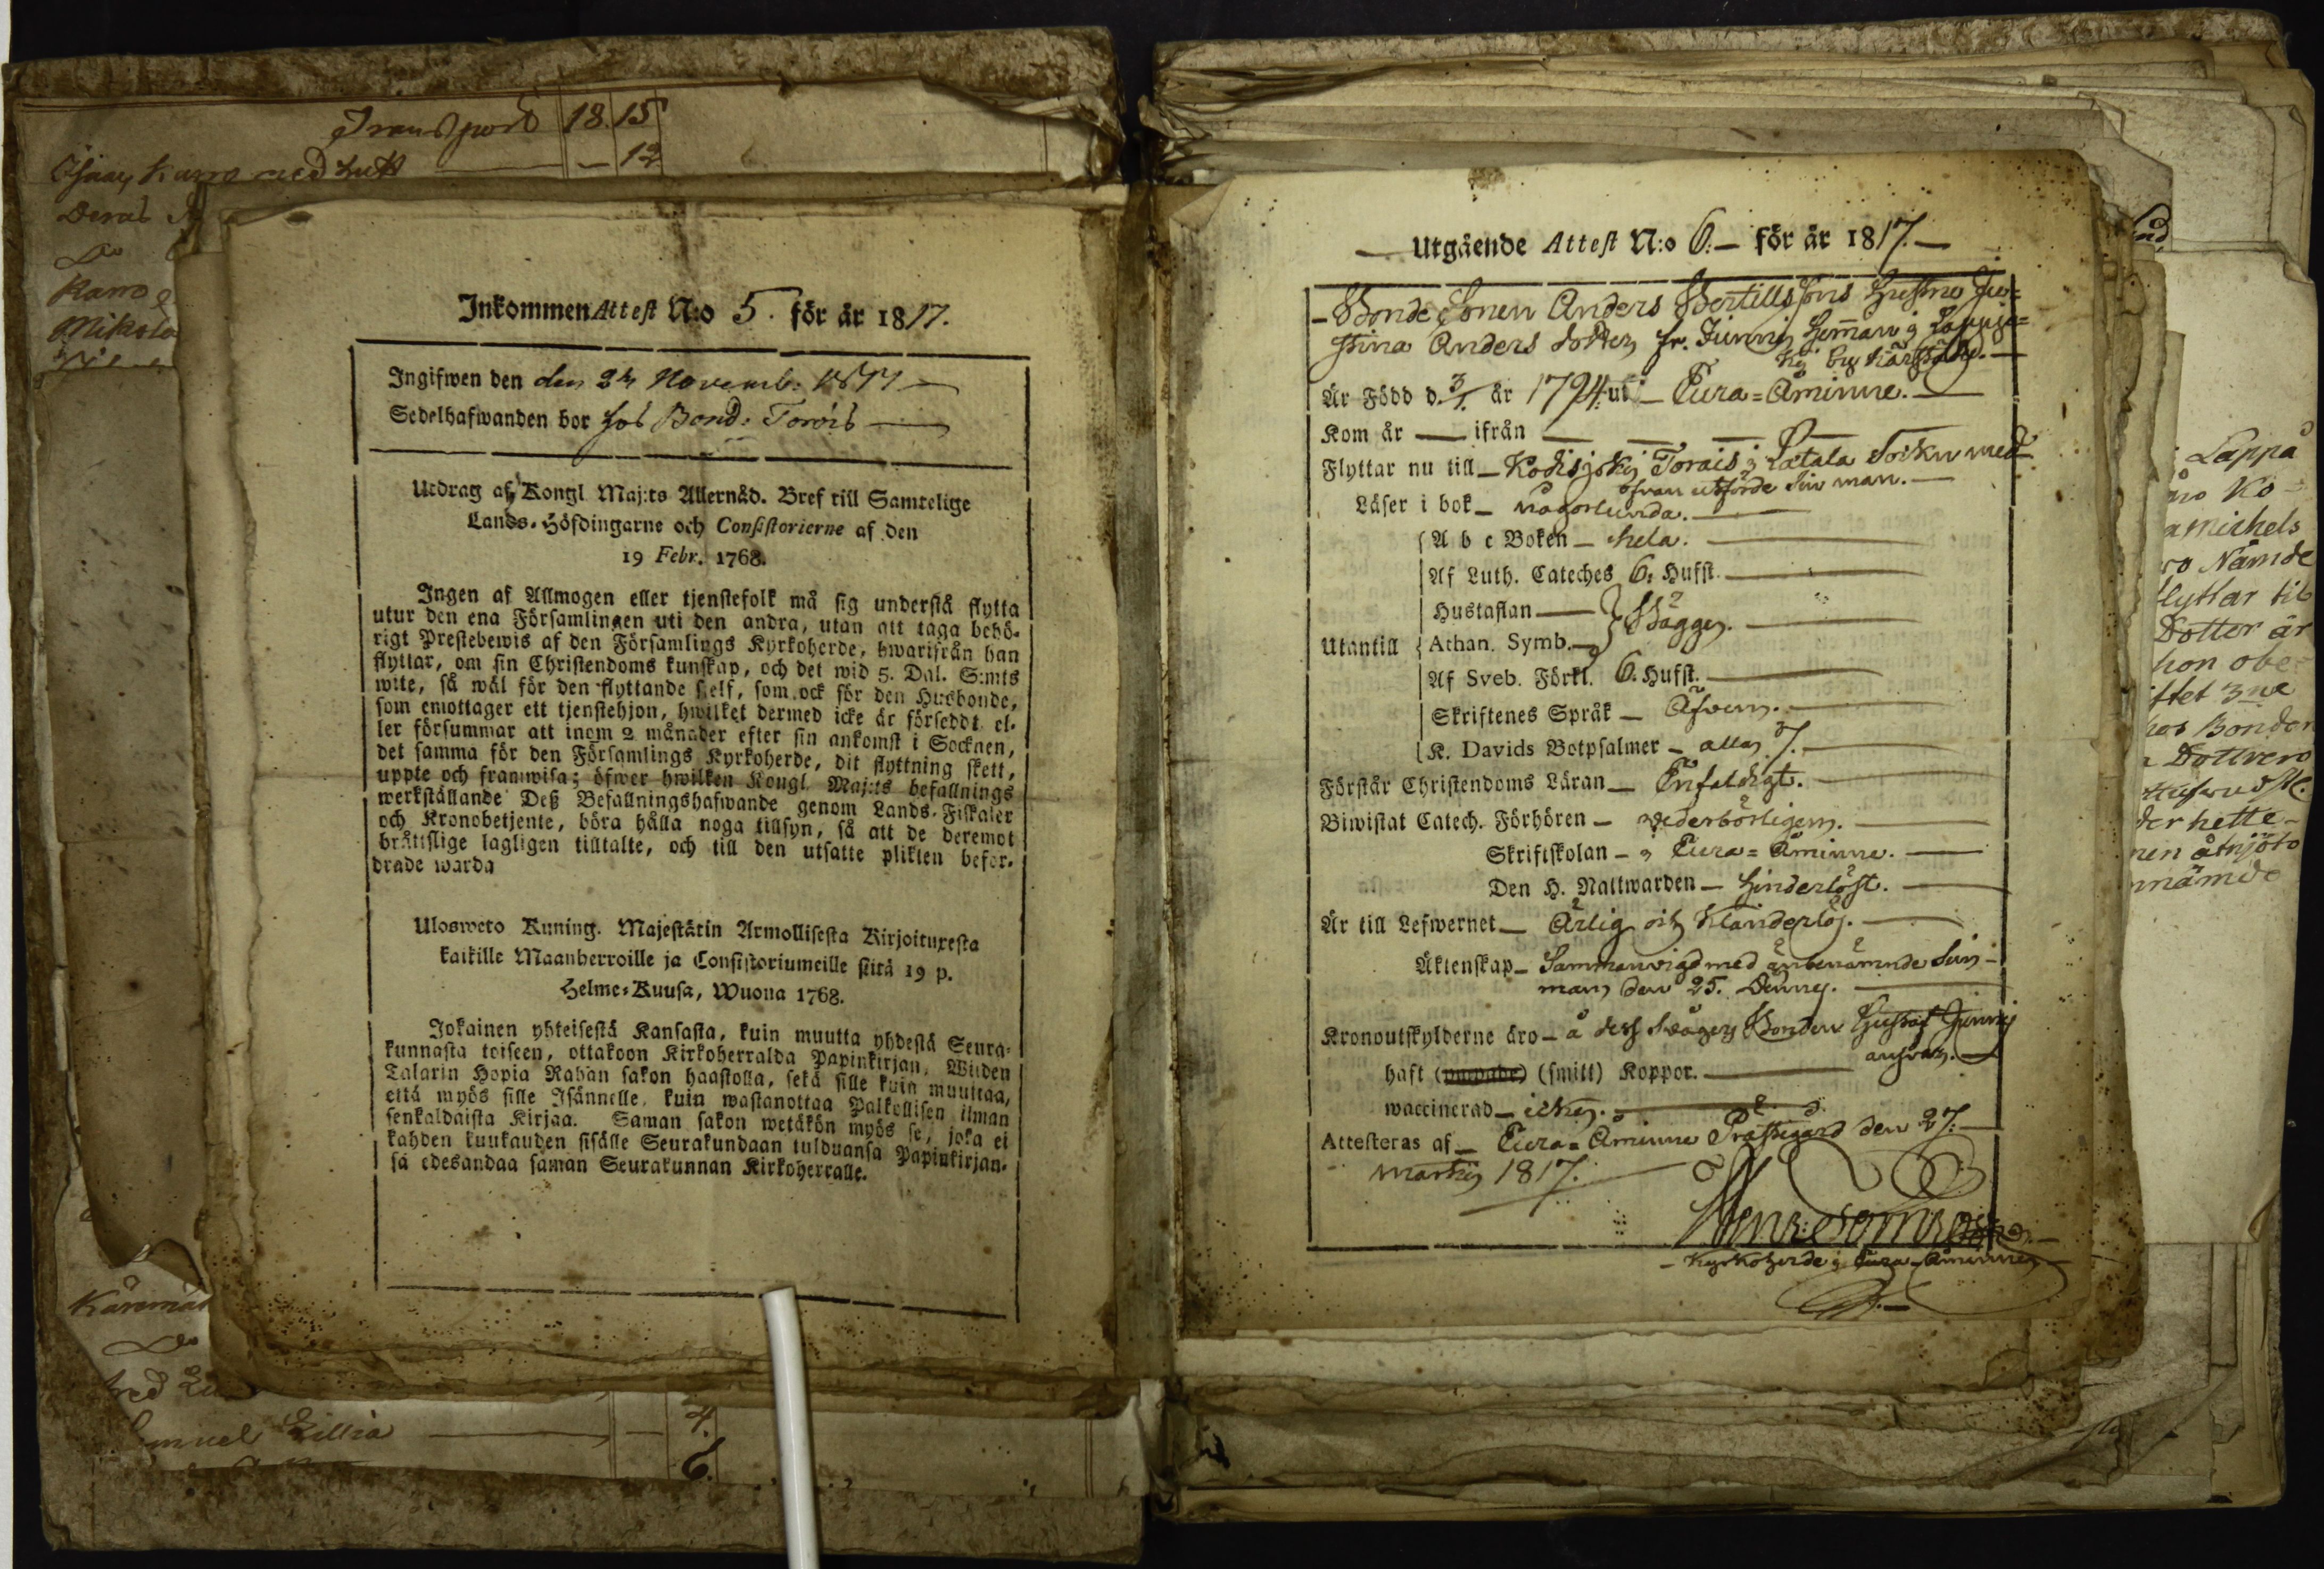 Transport 18. 15
med hust — 12
Deras
Do
Karro
Mikola
Inkommen Attest N:o 5. för år 1817.
Ingifwen den den 24 Novemb: 1817
Sedelhafwanden bor hos Bond: Torois
Utdrag af Kongl Maj:ts Allernåd. Bref till Samtelige
Lands-Höfdingarne och Consistorierne af den
19 Febr. 1768.
Ingen af Allmogen eller tjenstefolk må sig understå flytta
utur den ena Församlingen uti den andra, utan att taga behö-
rigt Prestebewis af den Församlings Kyrkoherde, hwarifrån han
flyttar, om sin Christendoms kunskap, och det wid 5. Dal. S:mts
wite, så wäl för den flyttande sjelf, som ock för den Husbonde,
som emottager ett tjenstehjon, hwilket dermed icke är försedt el-
ler försummar att inom 2 månader efter sin ankomst i Socknen,
det samma för den Församlings Kyrkoherde, dit flyttning skett,
uppte och framwisa; öfwer hwilken Kongl. Maj:ts befallnings
werkställande Deß Befallningshafwande genom Lands-Fiskaler
och Kronobetjente, böra hålla noga tillsyn, så att de deremot
bråttslige lagligen tilltalte, och till den utsatte plikten befor-
drade warda
Ulosweto Kuning. Majestätin Armollisesta Kirjoituxesta
kaikille Maanherroille ja Consistoriumeille siitä 19 p.
Helme-Kuusa, Wuona 1768.
Jokainen yhteisestä Kansasta, kuin muutta yhdestä Seura-
kunnasta toiseen, ottakoon Kirkoherralda Papinkirjan, Wiiden
Talarin Hopia Rahan sakon haastolla, sekä sille kuin muuttaa,
että myös sille Isännelle, kuin wastanottaa Palkollisen ilman
senkaldaista Kirjaa. Saman sakon wetäkön myös se, joka ei
kahden kuukauden sisälle Seurakundaan tulduansa Papinkirjan-
sa edesandaa saman Seurakunnan Kirkoherralle.
Samuel Killia — 4.
6.
Utgående Attest N:o 6. för år 1817.
Bonde Sonen Anders Bertills sons Hustru Ju=
stina Anders dotter fr. Junnij Hemman i Lappi=
by
Är Född d. 3/1. år 1794. uti Eura=Åminne.
Kom år — ifrån
Flyttar nu till Kodisjoki Torais i Letala Sokn med
ofvan utförde sin man.
Läser i bok någorlunda.
A b c Boken hela.
Af Luth. Cateches 6. Hufst.
Hustaflan
Bägge.
Utantill Athan. Symb.
Af Sveb. Förkl. 6. Hufst.
Skriftenes Språk Äfven.
K. Davids Botpsalmer alla 7.
Förstår Christendoms Läran Enfaldigt.
Biwistat Catech. Förhören vederbörligen.
Skriftskolan i Eura=Åminne.
Den H. Nattwarden hinderlöst.
Är till Lefwernet Ärlig och klanderlös.
Äktenskap Sammanvigd med ånbenämnde Sin
man den 25. Dennes.
Kronoutskylderne äro å dess svågers Bonden Gustaf Junnij
ansvar.
haft (smitt) Koppor.
waccinerad icke.
Attesteras af Eura=Åminne Prästegård den 27.
Martij 1817.
Kyrkoherde i Eura-Åminne
Lappi
Ko
michels
ro Nämde
flyttar till
Dotter är
hon
Bonden
hette
åtnjöto
nämde